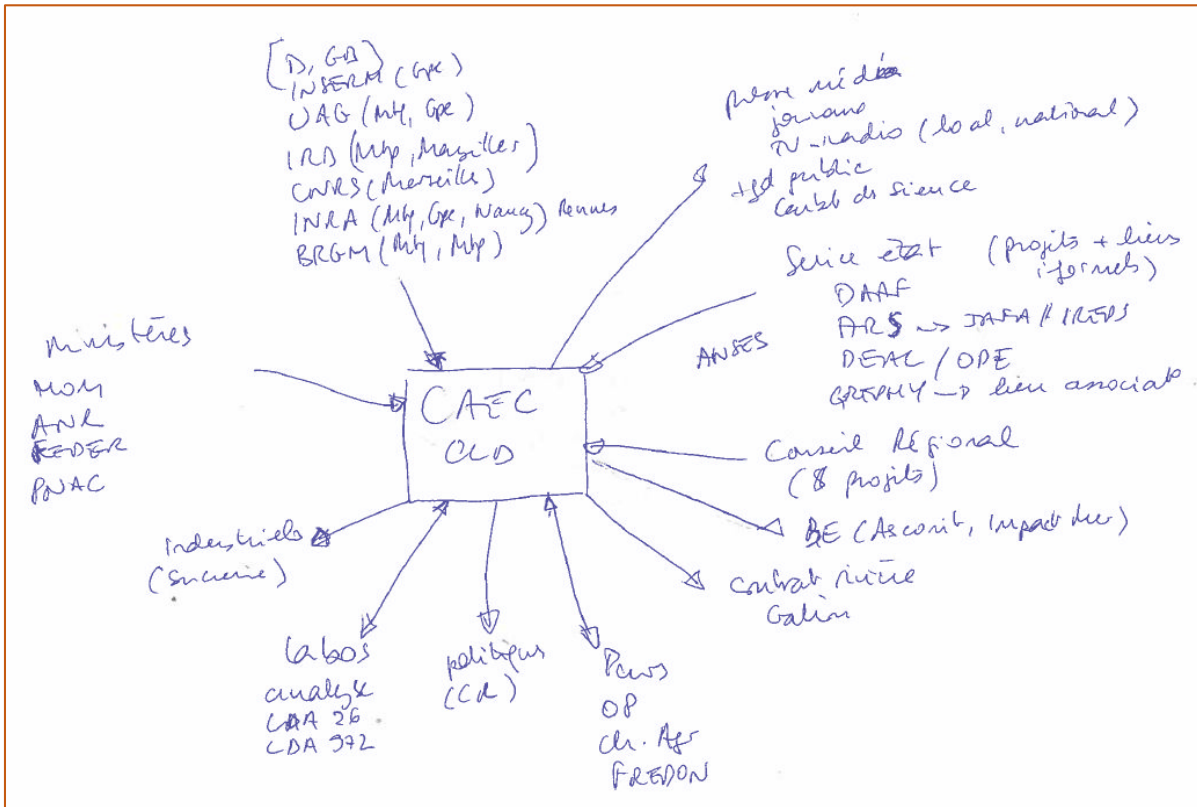 [D, GB]
INSERM (Gpe)
UAG (Mq, Gpe)
IRD (Mtp, Marseilles)
CNRS (Marseille)
INRA (Mtp, Gpe, Nancy) Rennes
BRGM (Mq, Mtp)
presse média
journaux
TV-radio (local, national)
+gd public
de science
Service état (projets + liens
informels)
DAAF
ARS → JAFA // IREPS
DEAL / ODE
GREPHY → lien associat
ANSES
Ministères
MOM
ANR
FEDER
PNAC
CAEC
CLD
Conseil Régional
(8 projets)
BE (Asconit, Impact Mer)
contrat rivière
Galion
industriels
(sucrerie)
labos
analyse
LDA 26
LDA 972
politiques
(CR)
OP
Ch. Agr
FREDON